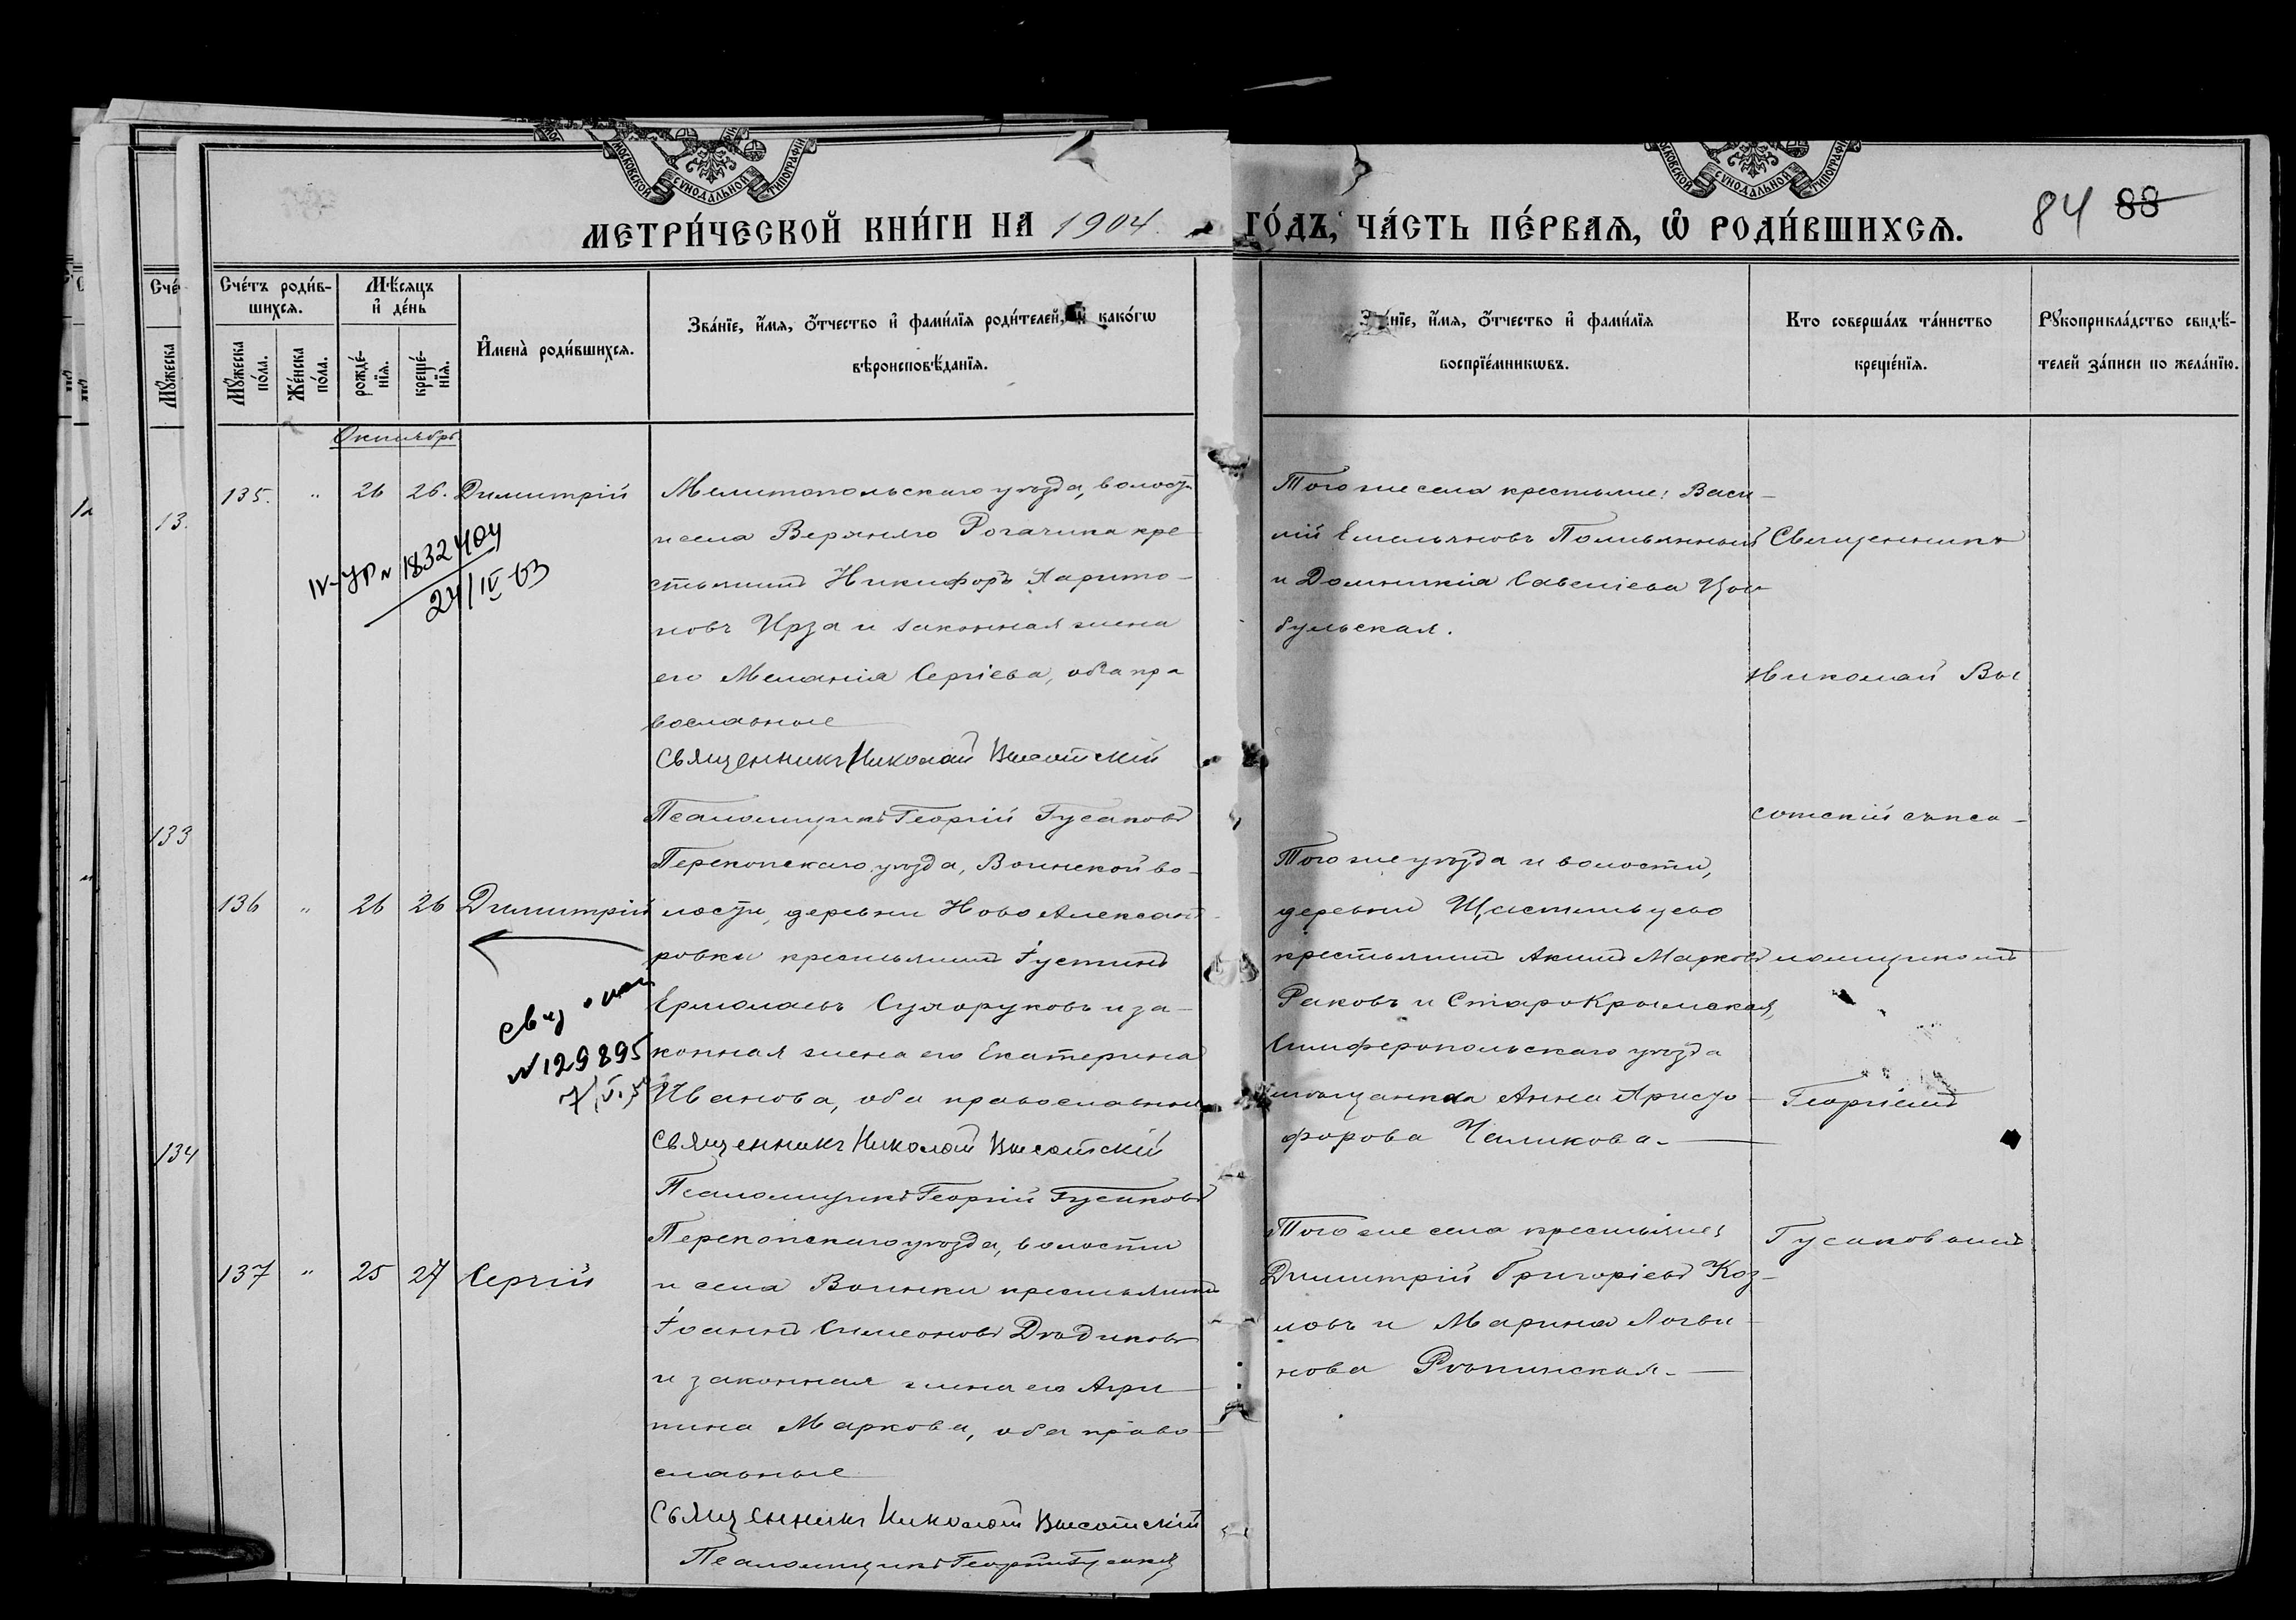 МОСКОВСКОЙ СѴНОДАЛЬНОЙ ТИПОГРАФІИ
МОСКОВСКОЙ СѴНОДАЛЬНОЙ ТИПОГРАФІИ
МЕТРИ́ЧЕСКОЙ КНИ́ГИ НА 1904. ГО́ДЪ, ЧА́СТЬ ПЕ́РВАЯ, Ѡ РОДИ́ВШИХСЯ.
84 88
Сче́тъ роди́в-
шихся.
Мѣ́сяцъ
и҆ де́нь
Мꙋ́жеска
по́ла.
Же́нска
по́ла.
рожде́-
нїѧ.
креще́-
нїѧ.
И҆мена̀ роди́вшихся.
Зва́нїе, и҆́мѧ, ѻ҆́тчество и҆ фами́лїѧ роди́телей, и҆ како́гѡ
вѣроисповѣ́данїѧ.
Зва́нїе, и҆́мѧ, ѻ҆́тчество и҆ фами́лїѧ
воспрїе́мникѡвъ.
Кто соверша́лъ та́инство
креще́нїѧ.
Рꙋкоприкла́дство свидѣ́-
телей за́писи по жела́нїю.
Октябрь
135. " 26 26. Димитрій
Мелитопольскаго уѣзда, волости
и села Верхняго Рогачика кре-
стьянинъ Никифоръ Харито-
новъ Ирза и законная жена
его Меланія Сергіева, оба пра
вославные
Священникъ Николай Высотскій
Псаломщикъ Георгій Гусаковъ
Того же села крестьяне: Васи-
лій Емельяновъ
и Домникія Савеліева Цы
бульская.
Священникъ
Николай Вы
сотскій съ пса-
ломщикомъ
Георгіемъ
Гусаковымъ
IV-УР № 1832404
24/IV-63
136 " 26 26 Димитрій
Перекопскаго уѣзда, Воинской во-
лости, деревни Ново Александ-
ровки крестьянинъ Іустинъ
Ермолаевъ Сухоруковъ и за-
конная жена его Екатерина
Иванова, оба православные
Священникъ Николай Высотскій
Псаломщикъ Георгій Гусаковъ
Того же уѣзда и волости,
деревни Щастливцево
крестьянинъ Акимъ Марковъ
Раковъ и СтароКрымская,
Симферопольскаго уѣзда
мѣщанка Анна Христо-
форова Чаликова.
№129895
137 " 25 27 Сергій
Перекопскаго уѣзда, волости
и села Воинки крестьянинъ
Іоаннъ Симеоновъ Дѣдиковъ
и законная жена его Агри-
пина Маркова, оба право-
славные
Священникъ Николай Высотскій
Псаломщикъ Георгій Гусаковъ
Того же села крестьяне:
Димитрій Григоріевъ Коз-
ловъ и Марина Логви-
нова Рѣпинская.
133
134